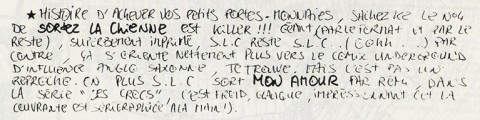 ★ HISTOIRE D'ACHEVER VOS PETITS PORTES-MONNAIES, SACHEZ KE LE NO4
DE SORTEZ LA CHIENNE EST KILLER!!! GEANT (PAR LE FORMAT ET PAR LE
RESTE), SUPERBEMENT IMPRIMÉ, S.L.C RESTE S.L.C. (EUHH...) PAR
CONTRE, ÇA S'ORIENTE NETTEMENT PLUS VERS LE COMIX UNDERGROUND
D'INFLUENCE ANGLO SAXONNE, JE TROUVE, MAIS C'EST PAS UN
REPROCHE. EN PLUS S.L.C SORT MON AMOUR PAR REMI, DANS
LA SÉRIE "LES CRECS" C'EST FROID, CLINIQUE, IMPRESSIONNANT (ET LA
COUVRANTE EST SERIGRAPHIÉE À LA MAIN!).